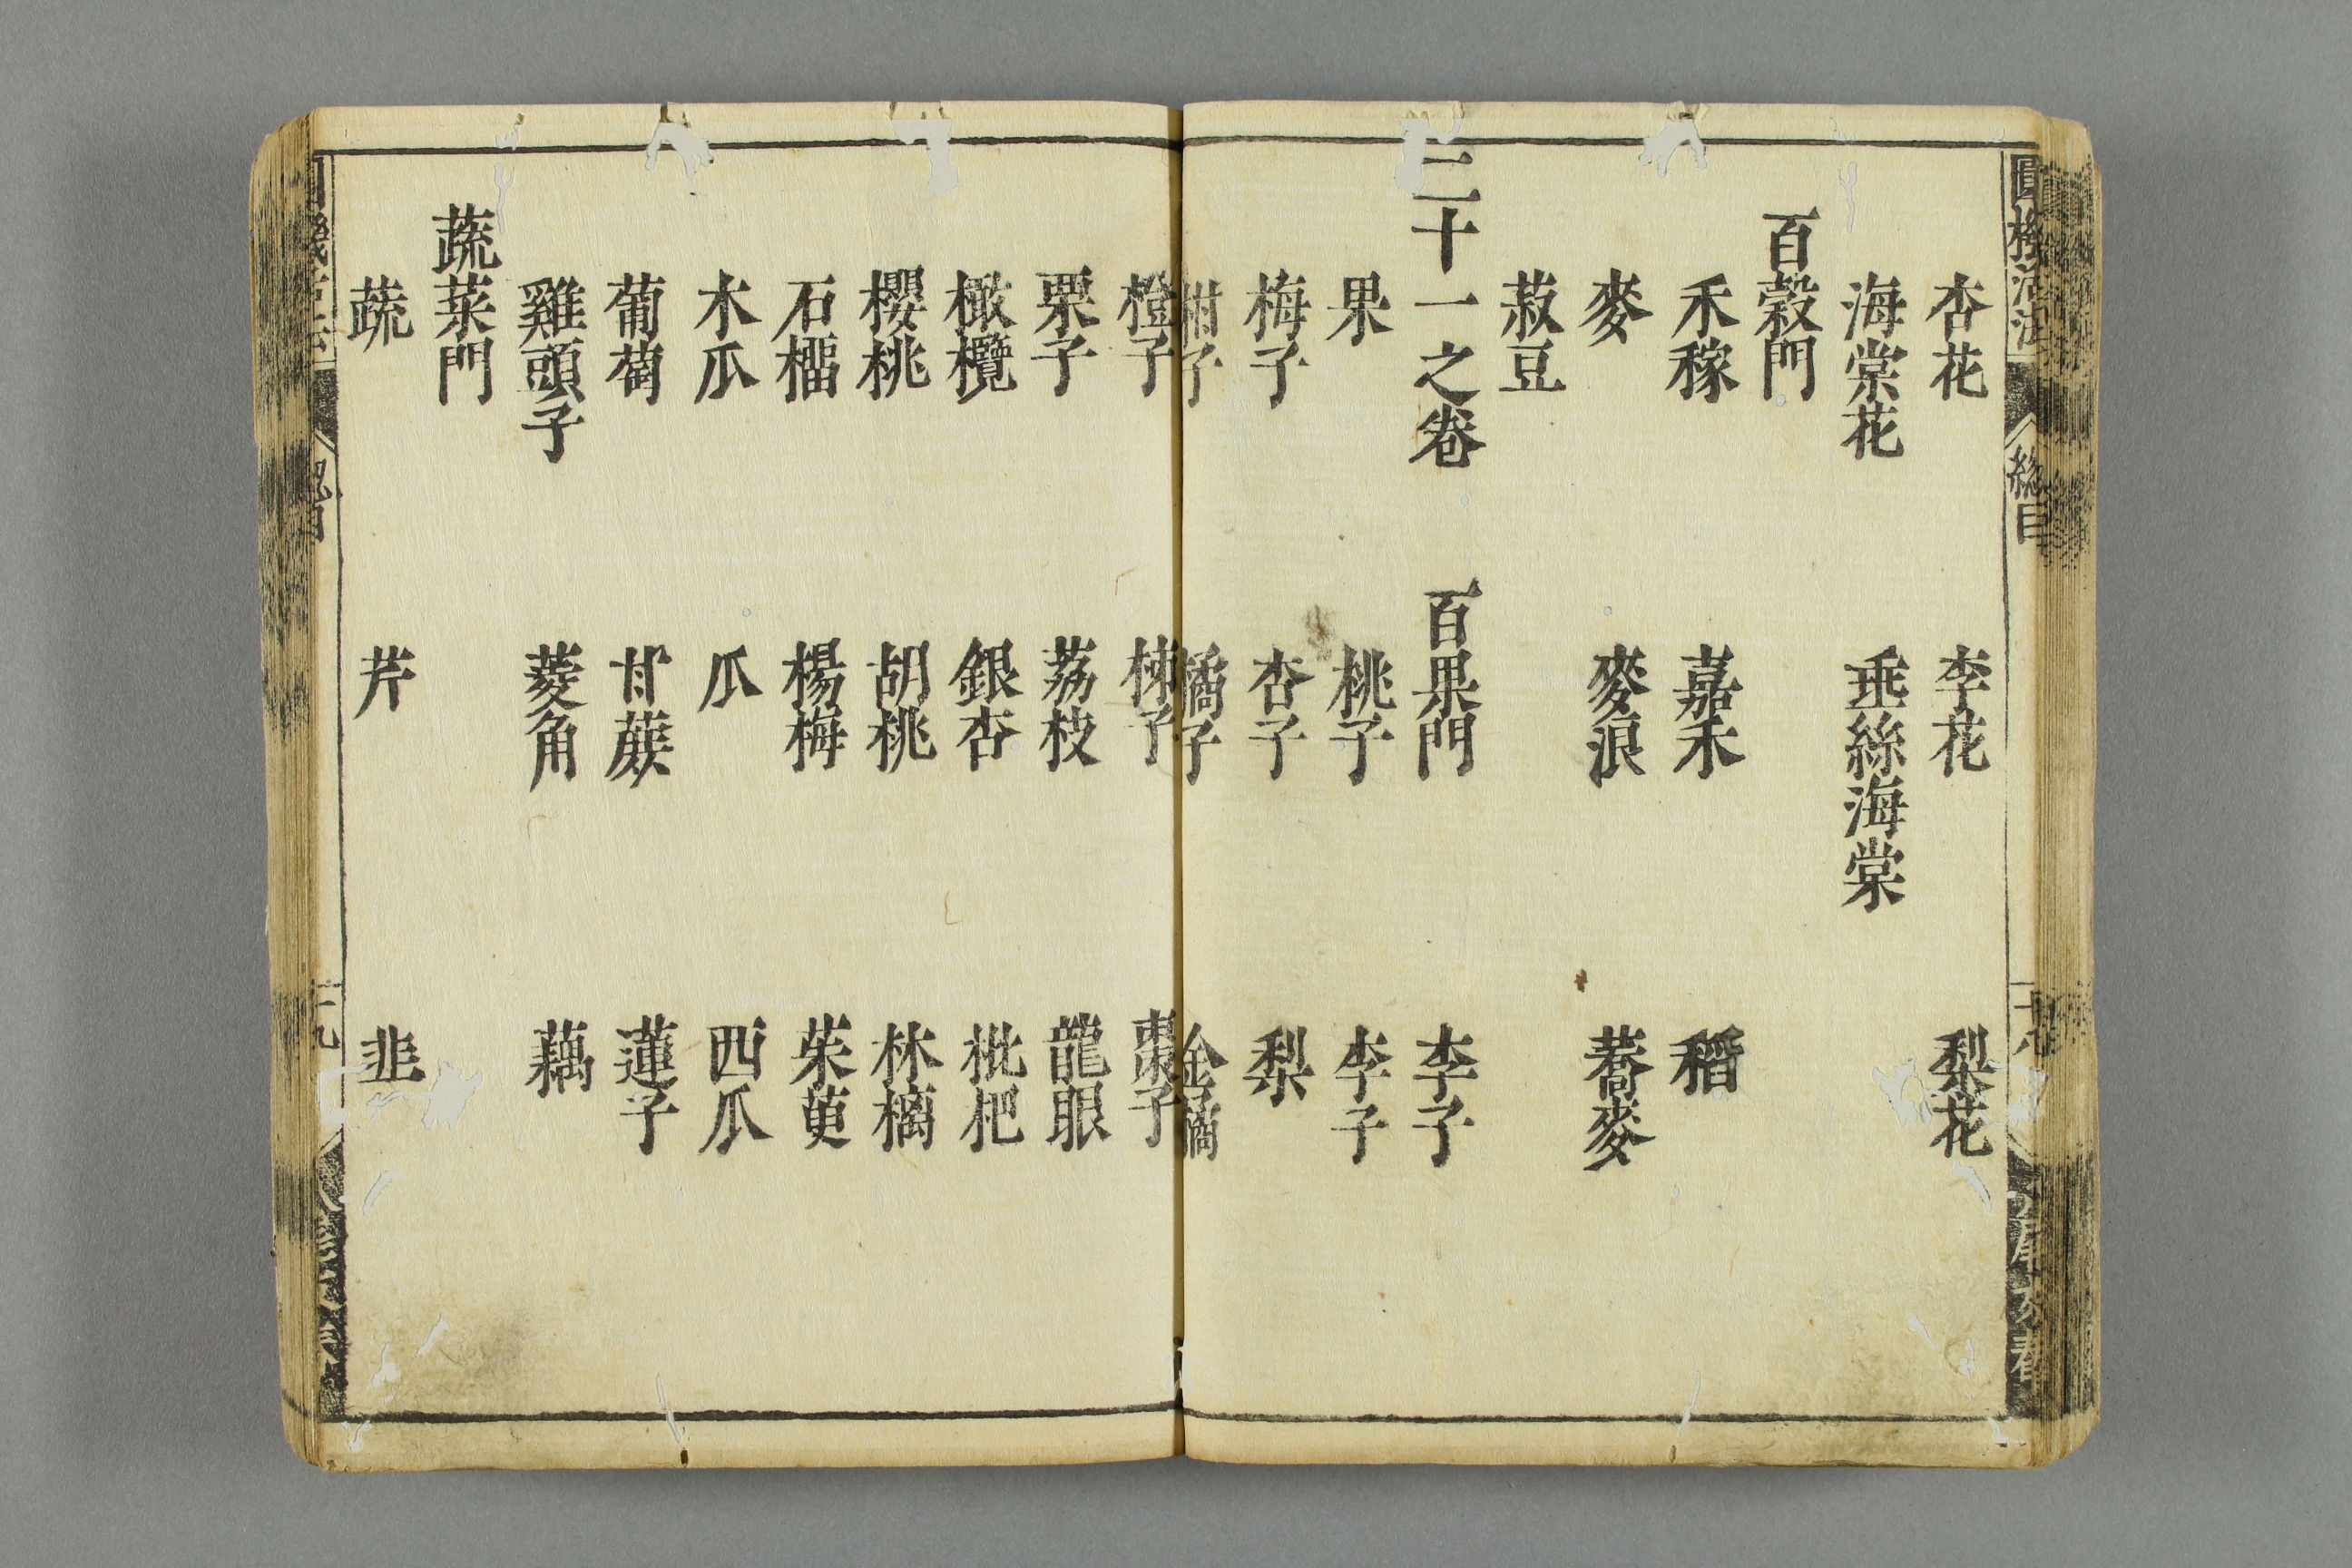 杏花 李花 梨花
海棠花 垂絲海棠
百穀門
禾稼 嘉禾 稻
麥 麥浪 蕎麥
菽豆
二十一之卷 百果門 李子
果 桃子 李子
梅子 杏子 梨
柑子 橘子 金橘
橙子 楝子 棗子
栗子 荔枝 龍眼
橄欖 銀杏 枇杷
櫻桃 胡桃 林檎
石榴 楊梅 茱萸
木瓜 瓜 西瓜
葡萄 甘蔗 蓮子
雞頭子 菱角 藕
蔬菜門
蔬 芹 韭
總目
十八